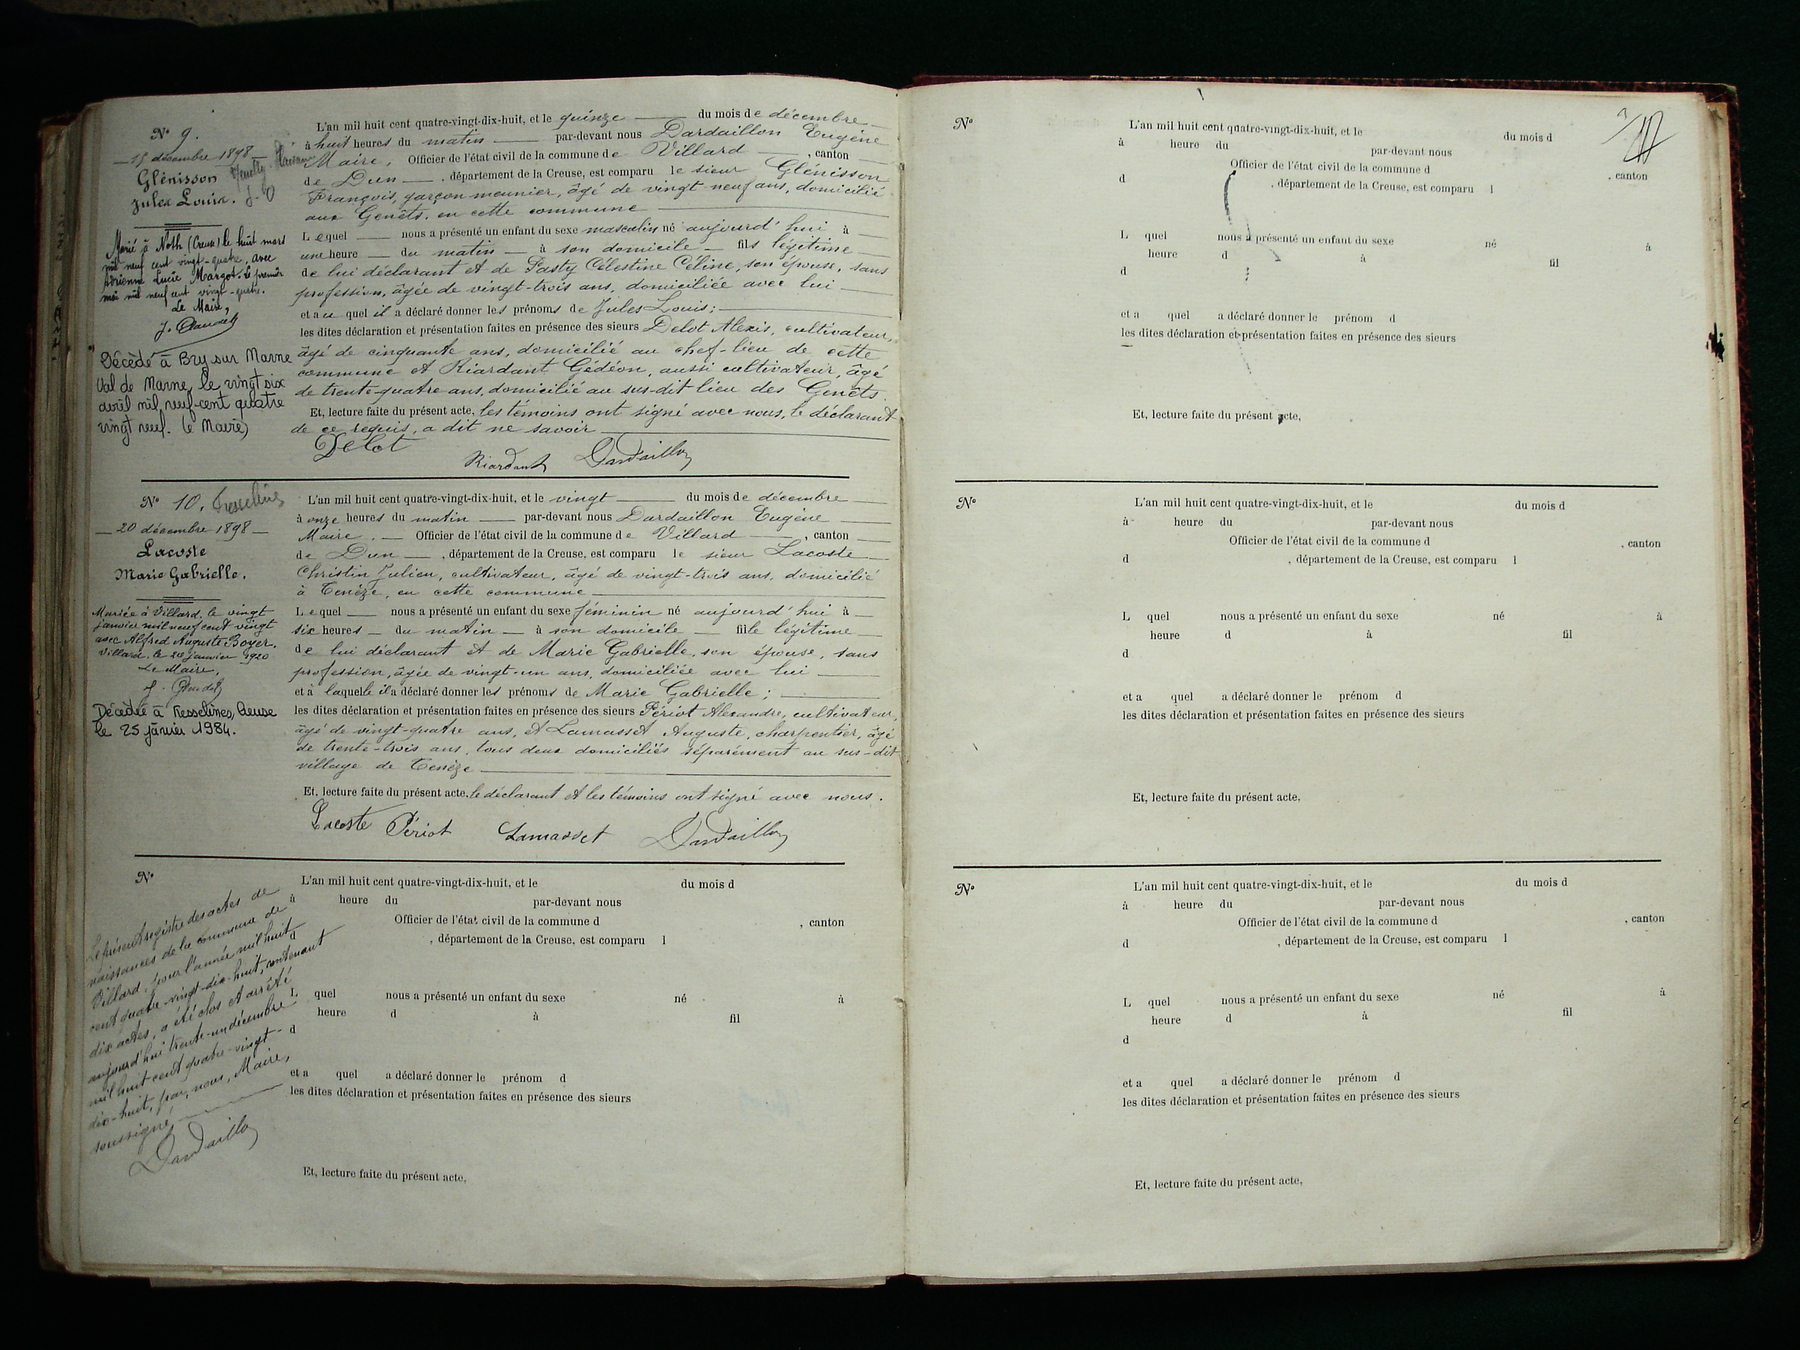 N° 9.
15 décembre 1898
Glénisson
Jules Louis.
Marié à Noth (Creuse) le huit mars
mil neuf cent vingt-quatre, avec
Adrienne Lucie Margot. Le premier
mai mil neuf cent vingt-quatre.
Le Maire,
Décédé à Bry sur Marne
Val de Marne, le vingt six
avril mil neuf-cent quatre
vingt neuf. (le Maire)
L'an mil huit cent quatre-vingt-dix-huit, et le quinze du mois de décembre
à huit heures du matin par-devant nous Dardaillon Eugène
Maire, Officier de l'état civil de la commune de Villard, canton
de Dun, département de la Creuse, est comparu le sieur Glénisson
François, garçon meunier, âgé de vingt-neuf ans, domicilié
aux Genêts, en cette commune
Lequel nous a présenté un enfant du sexe masculin né aujourd'hui à
une heure du matin à son domicile fils légitime
de lui déclarant et de Pasty Célestine Céline, son épouse, sans
profession, âgée de vingt-trois ans, domiciliée avec lui
et au quel il a déclaré donner les prénoms de Jules Louis;
les dites déclaration et présentation faites en présence des sieurs Delot Alexis, cultivateur,
âgé de cinquante ans, domicilié au chef-lieu de cette
commune et Riardant Gédéon, aussi cultivateur, âgé
de trente-quatre ans, domicilié au sus-dit lieu des Genêts.
Et, lecture faite du présent acte, les témoins ont signé avec nous, le déclarant
de ce requis, a dit ne savoir
Delot
Riardant Dardaillon
N° 10. Fresselines
20 décembre 1898
Lacoste
Marie Gabrielle.
Mariée à Villard, le vingt
janvier mil neuf cent vingt
avec Alfred Auguste Boyer.
Villard, le 20 janvier 1920
Le Maire,
Décédée à Fresselines, Creuse
le 25 janvier 1984.
L'an mil huit cent quatre-vingt-dix-huit, et le vingt du mois de décembre
à onze heures du matin par-devant nous Dardaillon Eugène
Maire. Officier de l'état civil de la commune de Villard, canton
de Dun, département de la Creuse, est comparu le sieur Lacoste
Christin Julien, cultivateur, âgé de vingt-trois ans, domicilié
à Tenèze, en cette commune
Lequel nous a présenté un enfant du sexe féminin né aujourd'hui à
six heures du matin à son domicile fille légitime
de lui déclarant et de Marie Gabrielle, son épouse, sans
profession, âgée de vingt-un ans, domiciliée avec lui
et à laquelle il a déclaré donner les prénoms de Marie Gabrielle;
les dites déclaration et présentation faites en présence des sieurs Périot Alexandre, cultivateur,
âgé de vingt-quatre ans, et Lamasset Auguste, charpentier, âgé
de trente-trois ans, tous deux domiciliés séparément au sus-dit
village de Tenèze
Et, lecture faite du présent acte, le déclarant et les témoins ont signé avec nous.
Lacoste Périot Lamasset Dardaillon
N°
Le présent registre des actes de
naissances de la commune de
Villard, pour l'année mil huit
cent quatre-vingt-dix-huit, contenant
dix actes, a été clos et arrêté
aujourd'hui trente-un décembre
mil huit cent quatre-vingt-
dix-huit, par nous, Maire,
soussigné
Dardaillon
L'an mil huit cent quatre-vingt-dix-huit, et le du mois d
à heure du par-devant nous
Officier de l'état civil de la commune d , canton
d , département de la Creuse, est comparu l
L quel nous a présenté un enfant du sexe né à
heure d à fil
d
et a quel a déclaré donner le prénom d
les dites déclaration et présentation faites en présence des sieurs
Et, lecture faite du présent acte,
N°
L'an mil huit cent quatre-vingt-dix-huit, et le du mois d
à heure du par-devant nous
Officier de l'état civil de la commune d , canton
d , département de la Creuse, est comparu l
L quel nous a présenté un enfant du sexe né à
heure d à fil
d
et a quel a déclaré donner le prénom d
les dites déclaration et présentation faites en présence des sieurs
Et, lecture faite du présent acte,
N°
L'an mil huit cent quatre-vingt-dix-huit, et le du mois d
à heure du par-devant nous
Officier de l'état civil de la commune d , canton
d , département de la Creuse, est comparu l
L quel nous a présenté un enfant du sexe né à
heure d à fil
d
et a quel a déclaré donner le prénom d
les dites déclaration et présentation faites en présence des sieurs
Et, lecture faite du présent acte,
N°
L'an mil huit cent quatre-vingt-dix-huit, et le du mois d
à heure du par-devant nous
Officier de l'état civil de la commune d , canton
d , département de la Creuse, est comparu l
L quel nous a présenté un enfant du sexe né à
heure d à fil
d
et a quel a déclaré donner le prénom d
les dites déclaration et présentation faites en présence des sieurs
Et, lecture faite du présent acte,